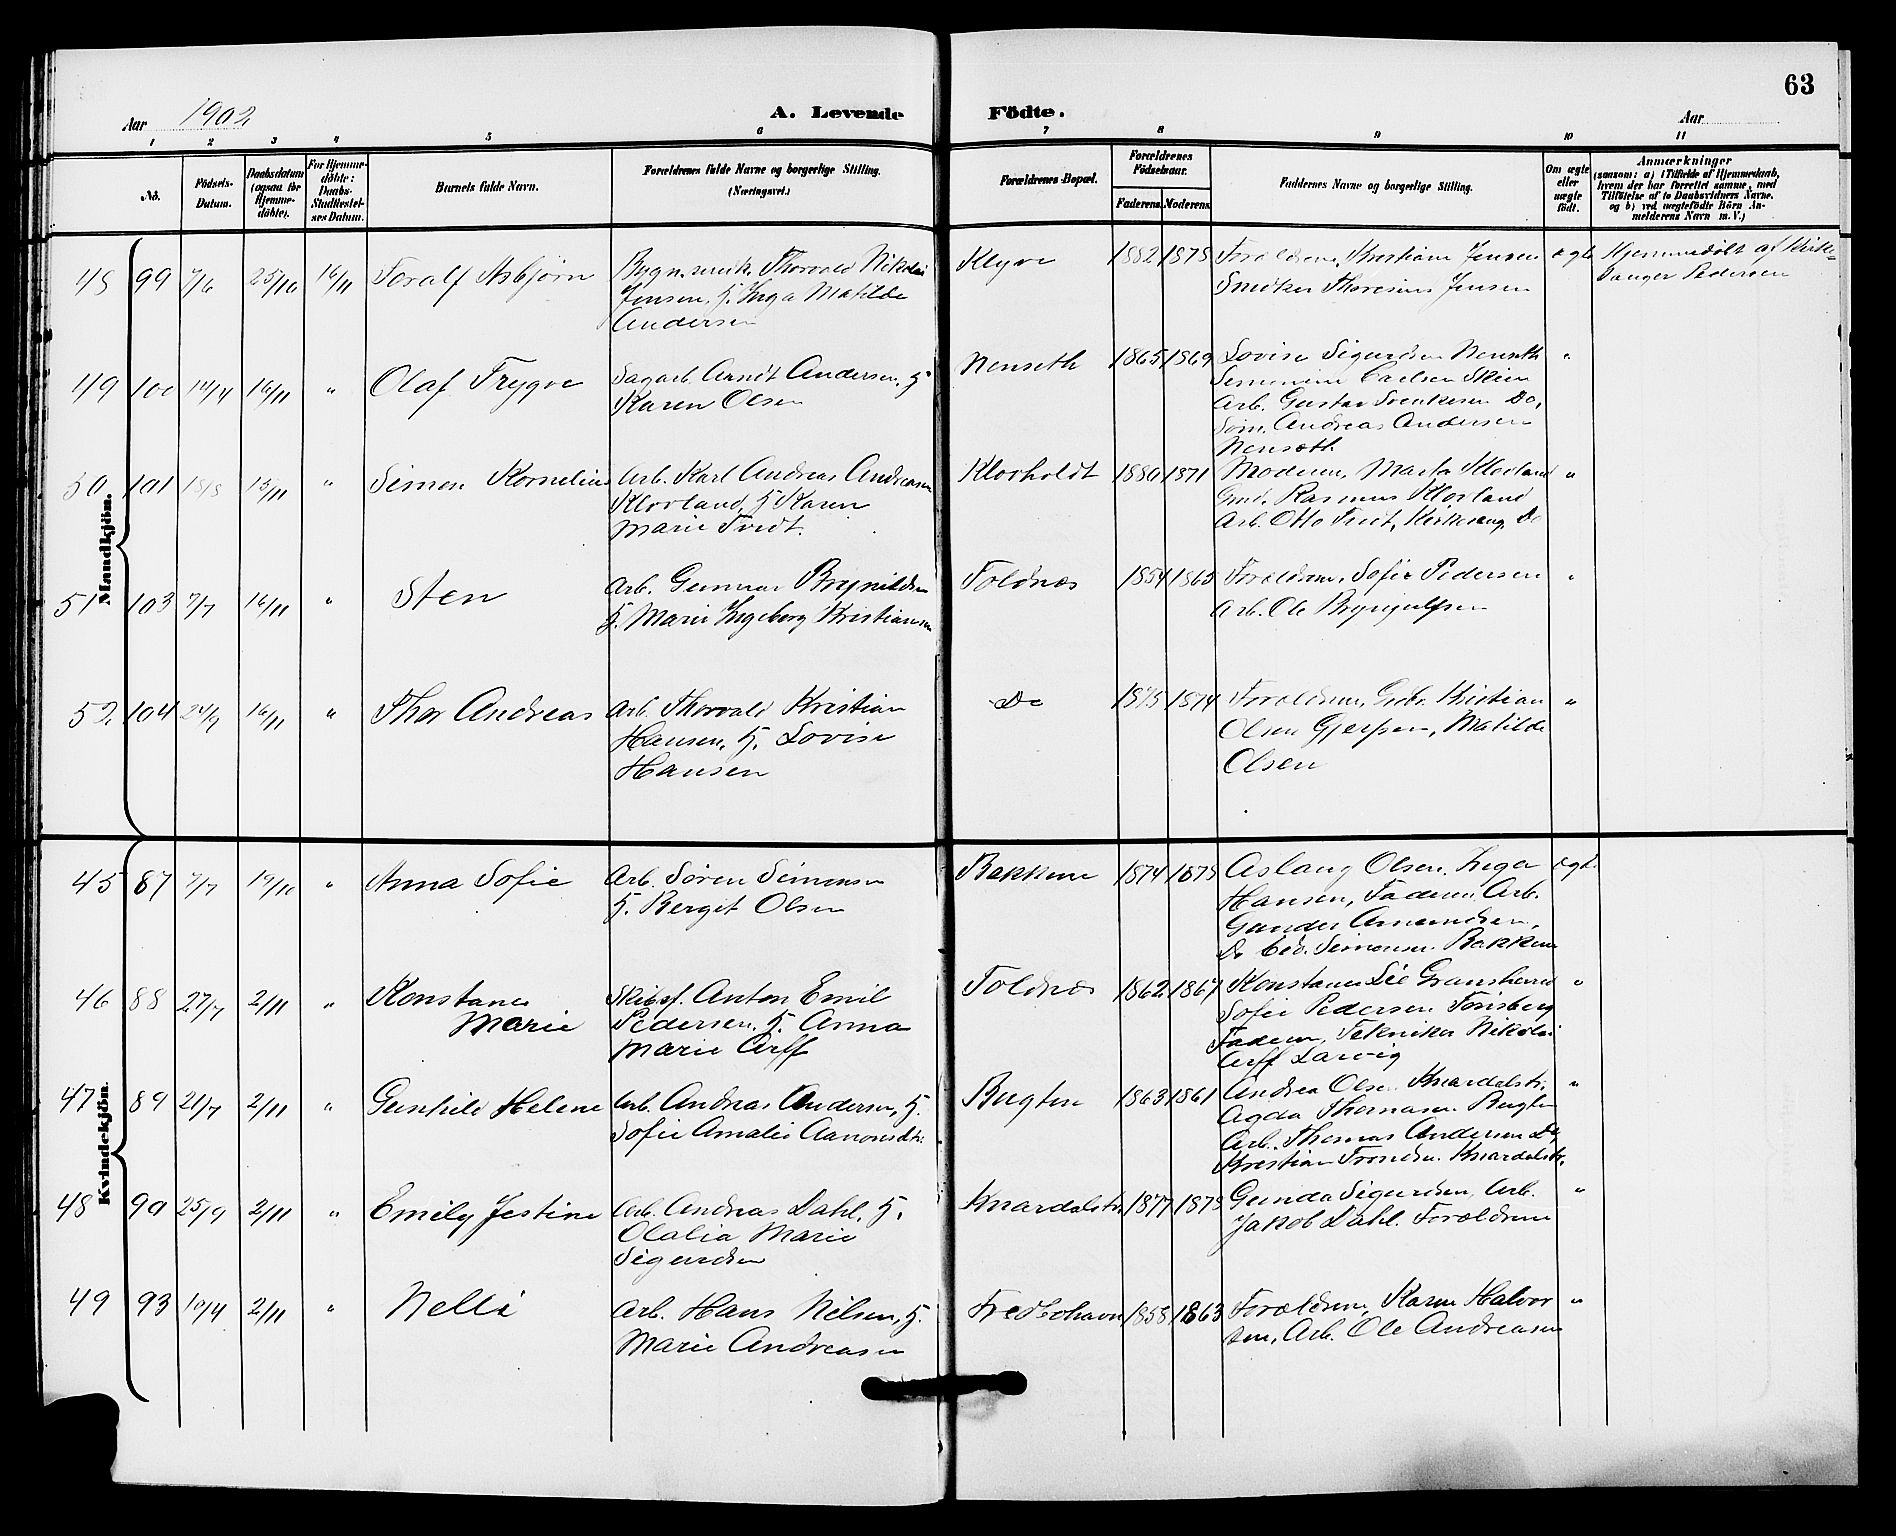 63
Aar 1902
A. Levende Födte.
Aar
1 2 3 4 5 6 7 8 9 10 11
No.
Födsels-Datum.
Daabsdatum (ogsaa for Hjemme-döbte).
For Hjemme-döbte: Daabs-Stadfæstel-ses Datum.
Barnets fulde Navn.
Forældrenes fulde Navne og borgerlige Stilling.
(Næringsvei.)
Forældrenes Bopæl.
Forældrenes Födselsaar.
Faderens. Moderens.
Faddernes Navne og borgerlige Stilling.
Om ægte eller uægte födt.
Anmærkninger
(saasom: a) i Tilfælde af Hjemmedaab,
hvem der har forrettet samme, med
Tilföielse af to Daabsvidners Navne,
og b) ved uægtefödte Börn An-
melderens Navn m. V.)
Mandkjön.
48 99 7/6 25/10 16/11 Toralf Asbjørn
Bygn.snik. Thorvald Nikolai
Jensen, H. Inga Matilde
Andersen
Klyve 1882 1878
Forældrene, Kristiane Jensen
Snidker Thorsinus Jensen
ægte
Hjemmedøbt af Kirke-
sanger Pedersen
49 100 14/4 16/11 " Olaf Trygve
Sagarb. Arndt Andersen, H
Karen Olsen
Nenseth 1865 1869
Lovise Sigurdsen Nenseth
Semmine Carlsen Skien
Arb. Gustav Svenkesen Do,
Søm. Andreas Andersen
Nenseth
"
50 101 18/8 15/11 " Simon Kornelius
Arb. Karl Andreas Andreasen
Klovland, H Karen
Marie Tvedt.
Klovholdt 1880 1871
Moderen, Marta Klovland
Gmd. Rasmus Klovland
Arb. Otto Tvedt, Kirkesang. Do
"
51 103 7/7 16/11 " Sten
Arb. Gunnar Brynildsen
H. Marie Ingeborg Kristiansen
Toldnes 1854 1865
Forældrene, Sofie Pedersen
Arb. Ole Brynjulfsen
"
52 104 24/9 16/11 " Thor Andreas
Arb. Thorvald Kristian
Hansen, H. Lovise
Hansen
Do 1875 1874
Forældrene, Grbr. Kristian
Olsen Gjerpen, Matilde
Olsen
"
Kvindekjön.
45 87 7/7 19/10 " Anna Sofie
Arb. Søren Simonsen
H. Berget Olsen
Bakkene 1874 1878
Aslaug Olsen. Inga
Hansen, Faderen, Arb.
Gunder Amundsen,
Do Edv. Simonsen. Bakkene
ægte
46 88 27/7 2/11 " Konstance
Marie
Skibsf. Anton Emil
Pedersen, H. Anna
Marie Arff
Toldnes 1862 1867
Konstance Lie Gransherred
Sofie Pedersen Tønsberg
Faderen, Tekniker Nikolai
Arff Larvig
"
47 89 21/7 2/11 " Gunhild Helene
Arb. Andreas Andersen, H.
Sofie Amalie Aanonsdtr.
Bugten 1863 1861
Andrea Olsen Knardalstr.
Agda Thomasen Bugten
Arb. Thomas Andersen Do,
Kristian Trondsen. Knardalstr.
"
48 90 25/9 2/11 " Emily Jestine
Arb. Andreas Dahl, H.
Olalia Marie
Sigurdsen
Knardalstr. 1877 1878
Gunda Sigurdsen, Arb.
Jakob Dahl. Forældrene
"
49 93 10/4 2/11 " Nelli
Arb. Hans Nilsen, H.
Marie Andreasen
Fredsohavn 1858 1863
Forældrene, Karen Halvor
sen, Arb. Ole Andreasen
"